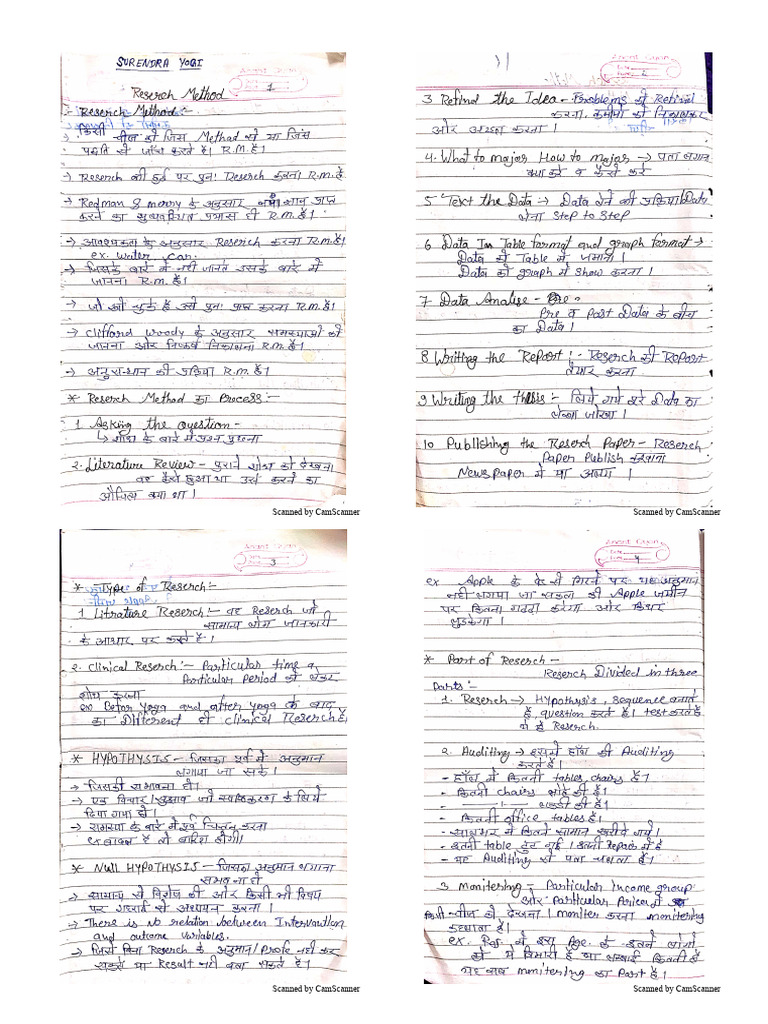 SURENDRA YOGI
Reserch Method
1
Reserch Method :-
किसी चीज को जिस Method से या जिस
पद्धति से जाँच करते है। R.M. है।
→ Reserch की हुई पर पुनः Reserch करना R.M. है
→ Redman & morry के अनुसार नवीन ज्ञान प्राप्त
करने का सुव्यवस्थित प्रयास ही R.M. है।
→ आवश्यकता के अनुसार Reserch करना R.M. है।
ex. water, car.
→ जिसके बारे में नही जानते उसके बारे में
जानना R.M. है।
→ जो खो चुके है उसे पुनः प्राप्त करना R.M. है।
→ Clifford woody के अनुसार समस्याओं को
जानना और निष्कर्ष निकालना R.M. है।
→ अनुसन्धान की प्रक्रिया R.M. है।
* Reserch Method का Process :-
1. Asking the question -
↳ शोध के बारे में प्रश्न पूछना
2. Literature Review - पुराने शोध को देखना
वह कैसे हुआ था उसे करने का
औचित्य क्या था।
Scanned by CamScanner
2
3 Refind the Idea - Problems को Refind
करना, कमीयों को निकालकर
और अच्छा करना।
4. What to major How to major → पता लगाना
क्या करे व कैसे करे
5 Text the Data → Data लेने की प्रक्रिया/Data
लेना Step to Step
6 Data In Table format and graph format →
Data को Table में जमाना।
Data को graph में Show करना।
7 Data Analise - Pre
Pre व Post Data के बीच
का Data।
8 Writting the Report :- Reserch की Report
तैयार करना
9 Writing the thesis :- लिये गये पूरे Data का
लेखा जोखा।
10 Publishing the Reserch Paper - Reserch
Paper Publish करवाना
News Paper में या अलग।
Scanned by CamScanner
3
* Type of Reserch :-
1 Litrature Reserch :- वह Reserch जो
सामान्य लोग जानकारी
के आधार पर करते है।
2. Clinical Reserch :- Particular time व
Particular Period को लेकर
शोध करना
ex Befor yoga and after yoga के बाद
का Different ही Clinical Reserch है।
* HYPOTHYSIS - जिसका पूर्व में अनुमान
लगाया जा सके।
→ जिसकी सम्भावना हो।
→ एक विचार/सुझाव जो स्पष्टीकरण के लिये
दिया गया हो।
→ समस्या के बारे में पूर्व चिन्तन करना
ex बादल है तो बारिश होगी।
* Null HYPOTHYSIS - जिसका अनुमान लगाना
सम्भव ना हो
→ सामान्य से विशेज की और किसी भी विषय
पर गहराई से अध्ययन करना।
→ There is no relation between Intervantion
and outcome variables.
→ जिसे बिना Reserch के अनुमान/Profe नही कर
सकते या Result नही बता सकते है।
Scanned by CamScanner
4
ex Apple के पेड़ से गिरने पर यह अनुमान
नही लगाया जा सकता की Apple जमीन
पर कितना गहरा करेगा और किधर
लुढकेगा।
* Part of Reserch -
Reserch Divided in three
Parts :-
1. Reserch → Hypothysis, sequence बनाते
है, question करते है। test करते है
ये है Reserch
2. Auditing → इसमें हॉल की Auditing
करते है।
- हॉल में कितनी tables, chairs है।
- कितनी chairs लोहे की है।
- —ı— लकड़ी की है।
- कितनी office tables है।
- सालभर में कितने सामान खरीदे गये।
- इतनी table टूट गई। इतनी Repair में है
- यह Auditing से पता चलता है।
3. Monitering - Particular Income group
और Particular Period में
किसी चीज को देखना। moniter करना monitering
कहलाता है।
ex. Raj. में इस Age के इतने लोगो
को ये बिमारी है या लम्बाई कितनी है
यह सब monitering का Part है।
Scanned by CamScanner